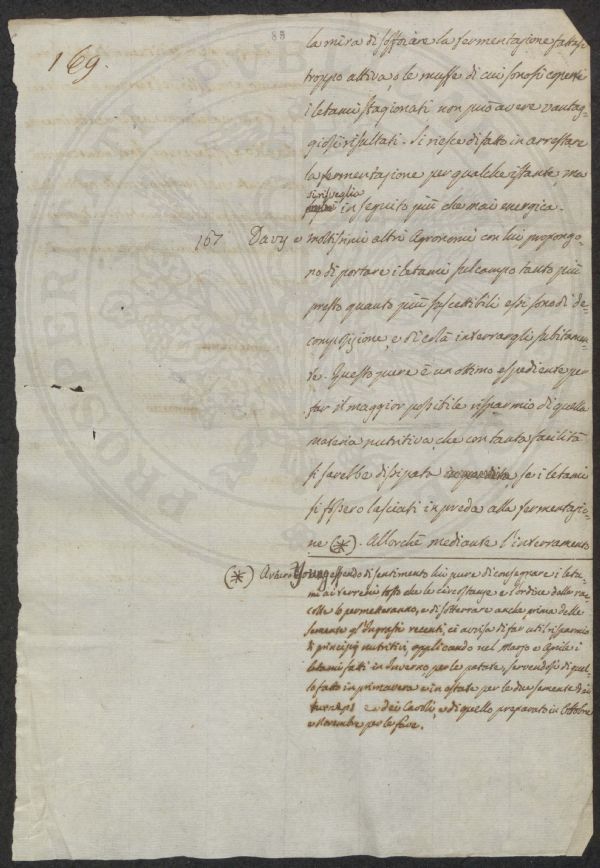 88
169.
la mira di soffocare la fermentazione fattasi
troppo attiva, o le muffe di cui sonosi coperti
i letami stagionati non può avere vantag-
giosi risultati. Si riesce di fatto in arrestare
la fermentazione per qualche istante ma
si risveglia
in seguito più che mai energica.
167 Davy e moltissimi altri Agronomi con lui propongo-
no di portare i letami sul campo tanto più
presto quanto più suscettibili essi sono di de-
composizione, e di colà interrargli subitamen-
te. Questo pure è un ottimo espediente per
far il maggior possibile risparmio di quella
materia nutritiva, che con tanta facilità
si sarebbe dissipata se i letami
si fossero lasciati in preda alla fermentazio-
ne (*). Allorchè mediante l'interramento
(*) Arturo Young essendo di sentimento lui pure di consegnare i leta-
mi ai terreni tosto che le circostanze e l'ordine delle rac-
colte lo permetteranno, e di sotterrare anche prima delle
semente gl'Ingrassi recenti, ci avvisa di far util risparmio
di principj nutritivi, applicando nel Marzo e Aprile i
letami fatti in Inverno per le patate, servendosi di quel-
lo fatto in primavera e in estate per le due semente dei
turneps e dei Cavoli, e di quello preparato in Ottobre
e Novembre per le fave.